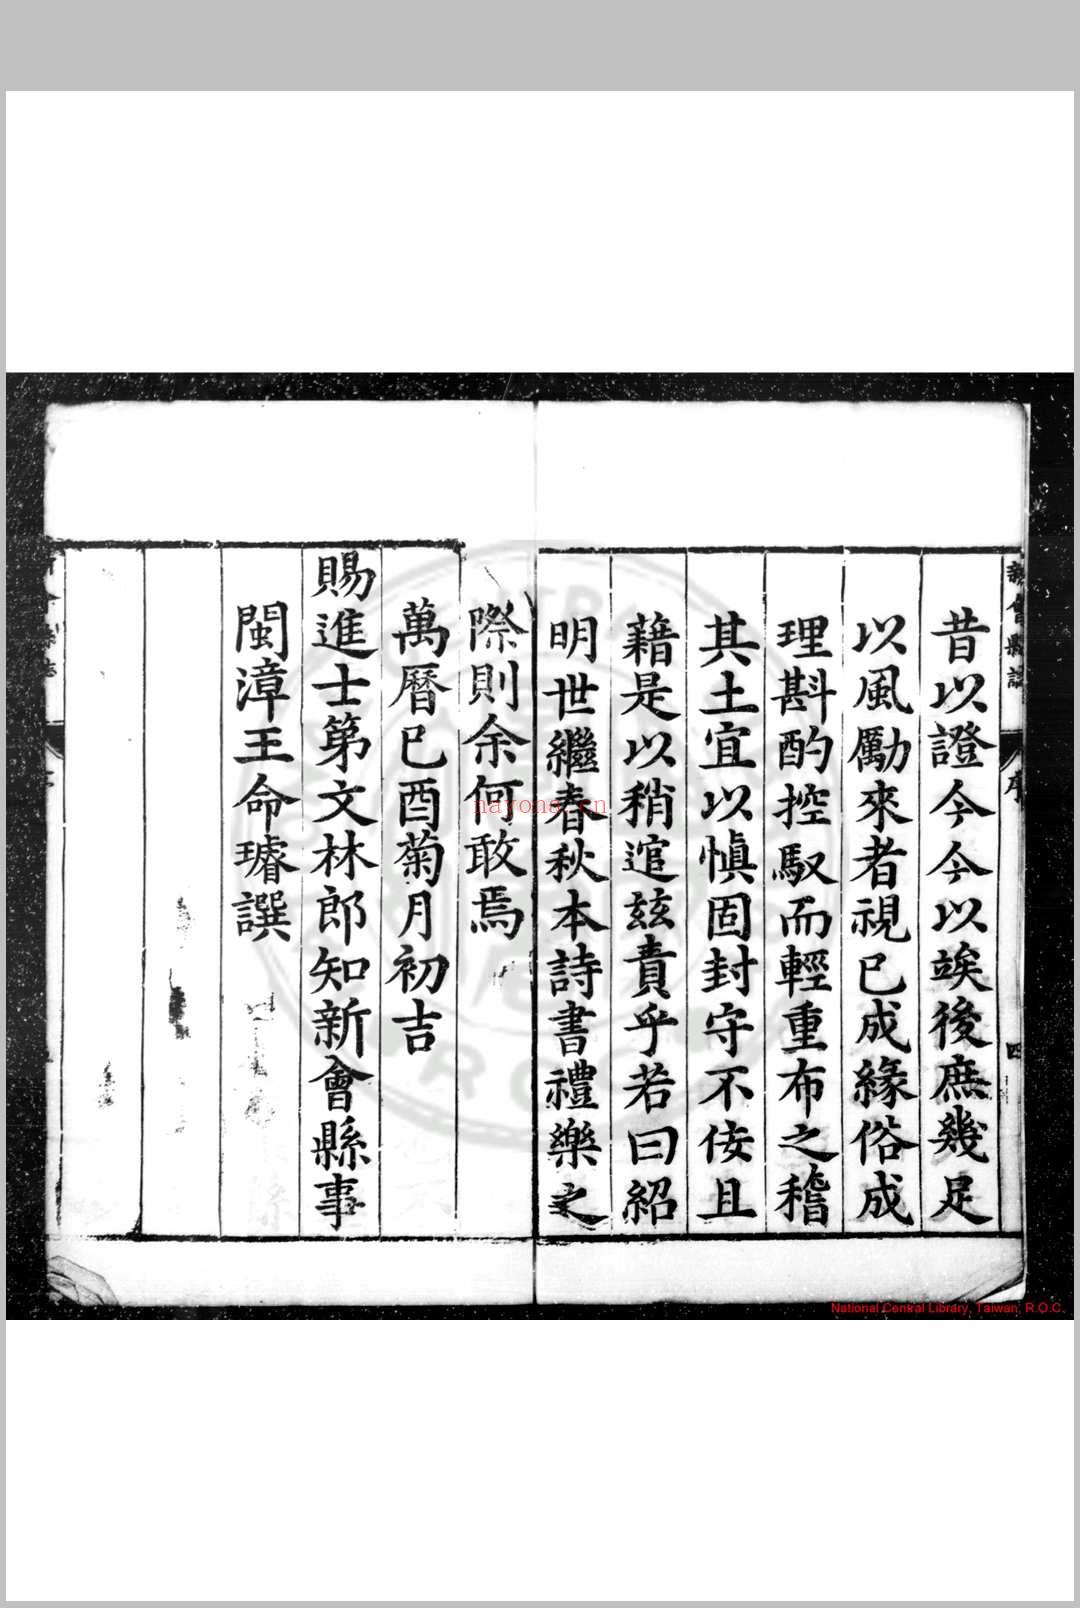 昔以證今今以竢後庶幾足
以風勵來者視已成緣俗成
理斟酌控馭而輕重布之稽
其土宜以慎固封守不佞且
藉是以稍逭茲責乎若曰紹
明世繼春秋本詩書禮樂之
際則余何敢焉
萬曆已酉菊月初吉
賜進士第文林郎知新會縣事
閩漳王命璿譔
新會縣誌
序
四
nayona.cn
National Central Library, Taiwan, R.O.C.